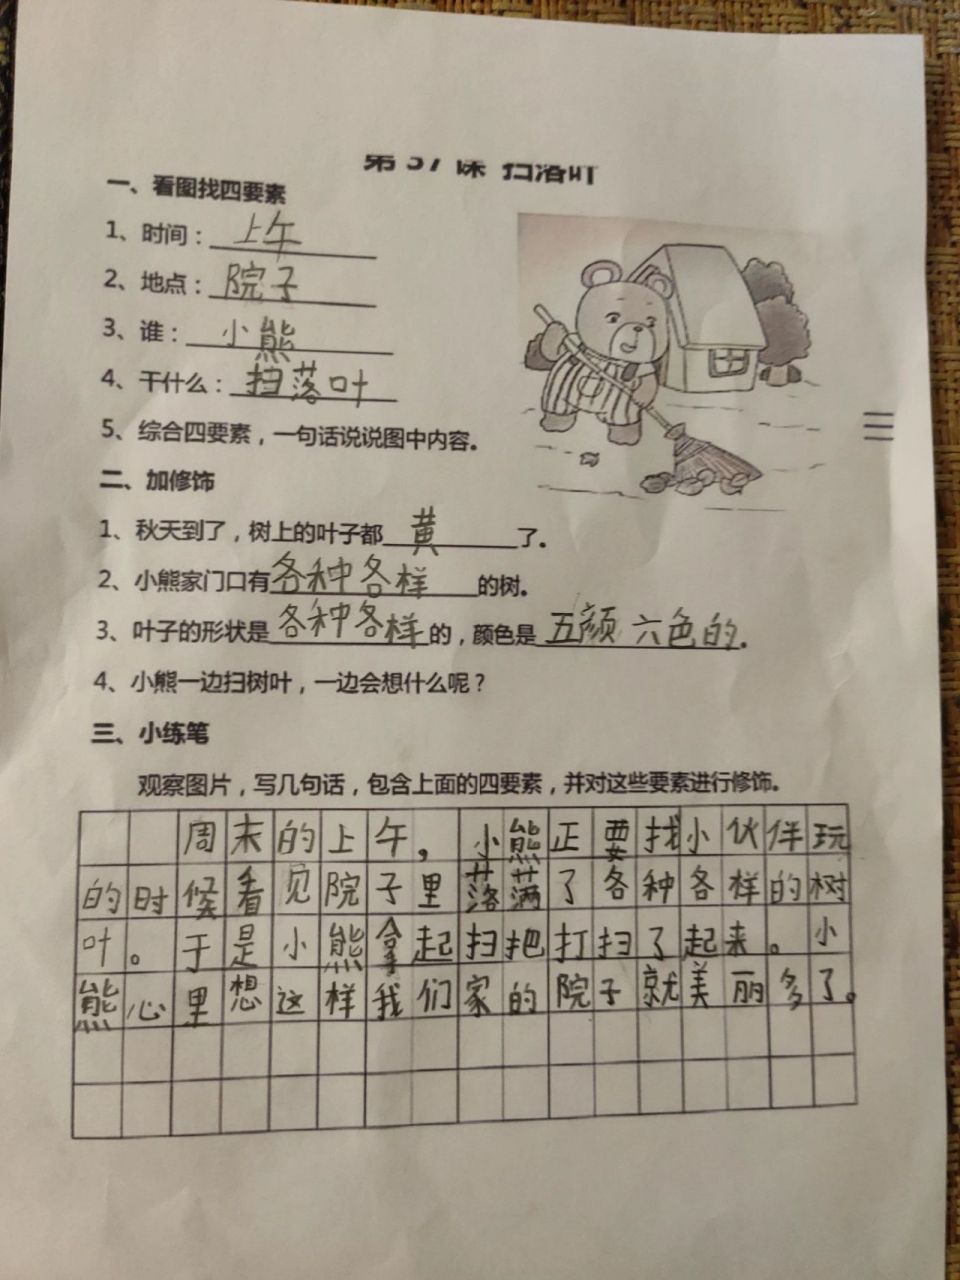 第37课 扫落叶
一、看图找四要素
1、时间：上午
2、地点：院子
3、谁：小熊
4、干什么：扫落叶
5、综合四要素，一句话说说图中内容。
二、加修饰
1、秋天到了，树上的叶子都黄了。
2、小熊家门口有各种各样的树。
3、叶子的形状是各种各样的，颜色是五颜六色的。
4、小熊一边扫树叶，一边会想什么呢？
三、小练笔
观察图片，写几句话，包含上面的四要素，并对这些要素进行修饰。
周末的上午，小熊正要找小伙伴玩
的时候看见院子里落满了各种各样的树
叶。于是小熊拿起扫把打扫了起来。小
熊心里想这样我们家的院子就美丽多了。